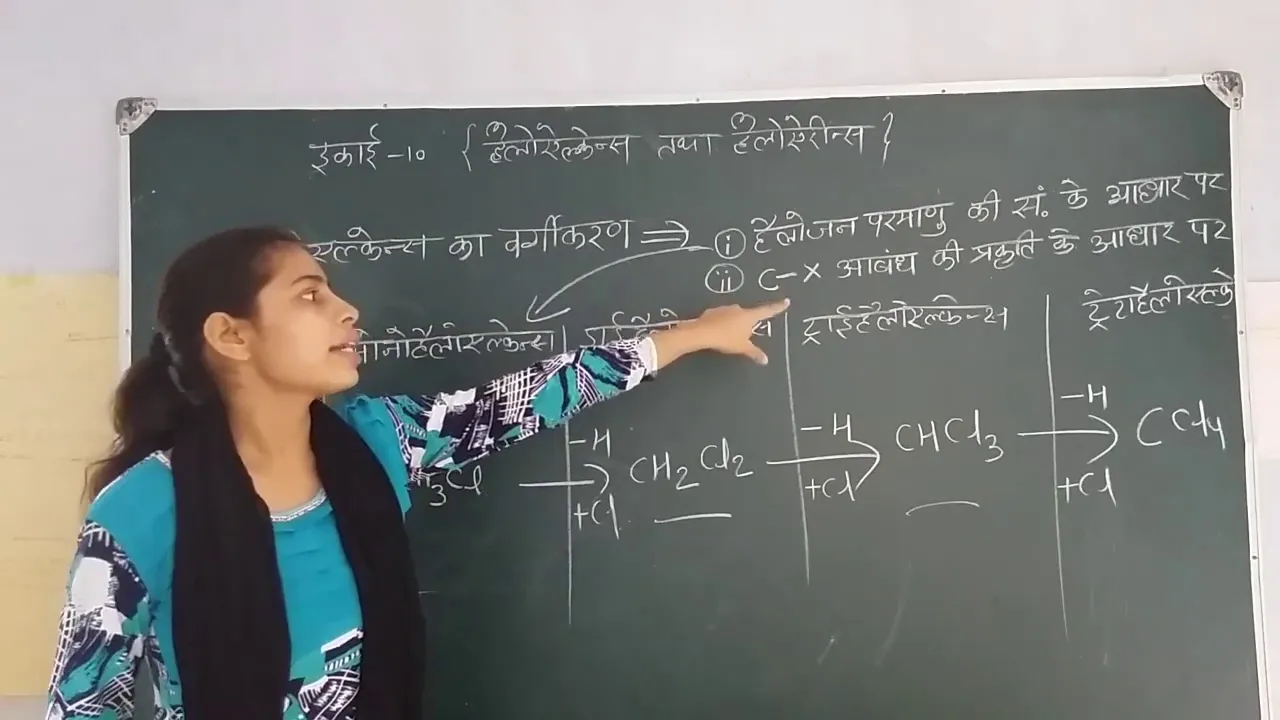 इकाई -10 { हैलोऐल्केन्स तथा हैलोऐरीन्स }
ऐल्केन्स का वर्गीकरण ⇒ (i) हैलोजन परमाणु की सं. के आधार पर
(ii) C-X आबंध की प्रकृति के आधार पर
मोनोहैलोऐल्केन्स ट्राईहैलोऐल्केन्स ट्रेटाहैलोऐल्के
3Cl -H +Cl CH2Cl2 -H +Cl CHCl3 -H +Cl CCl4